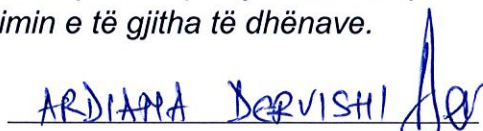 imin e të gjitha të dhënave.
ARDIANA DERVISHI